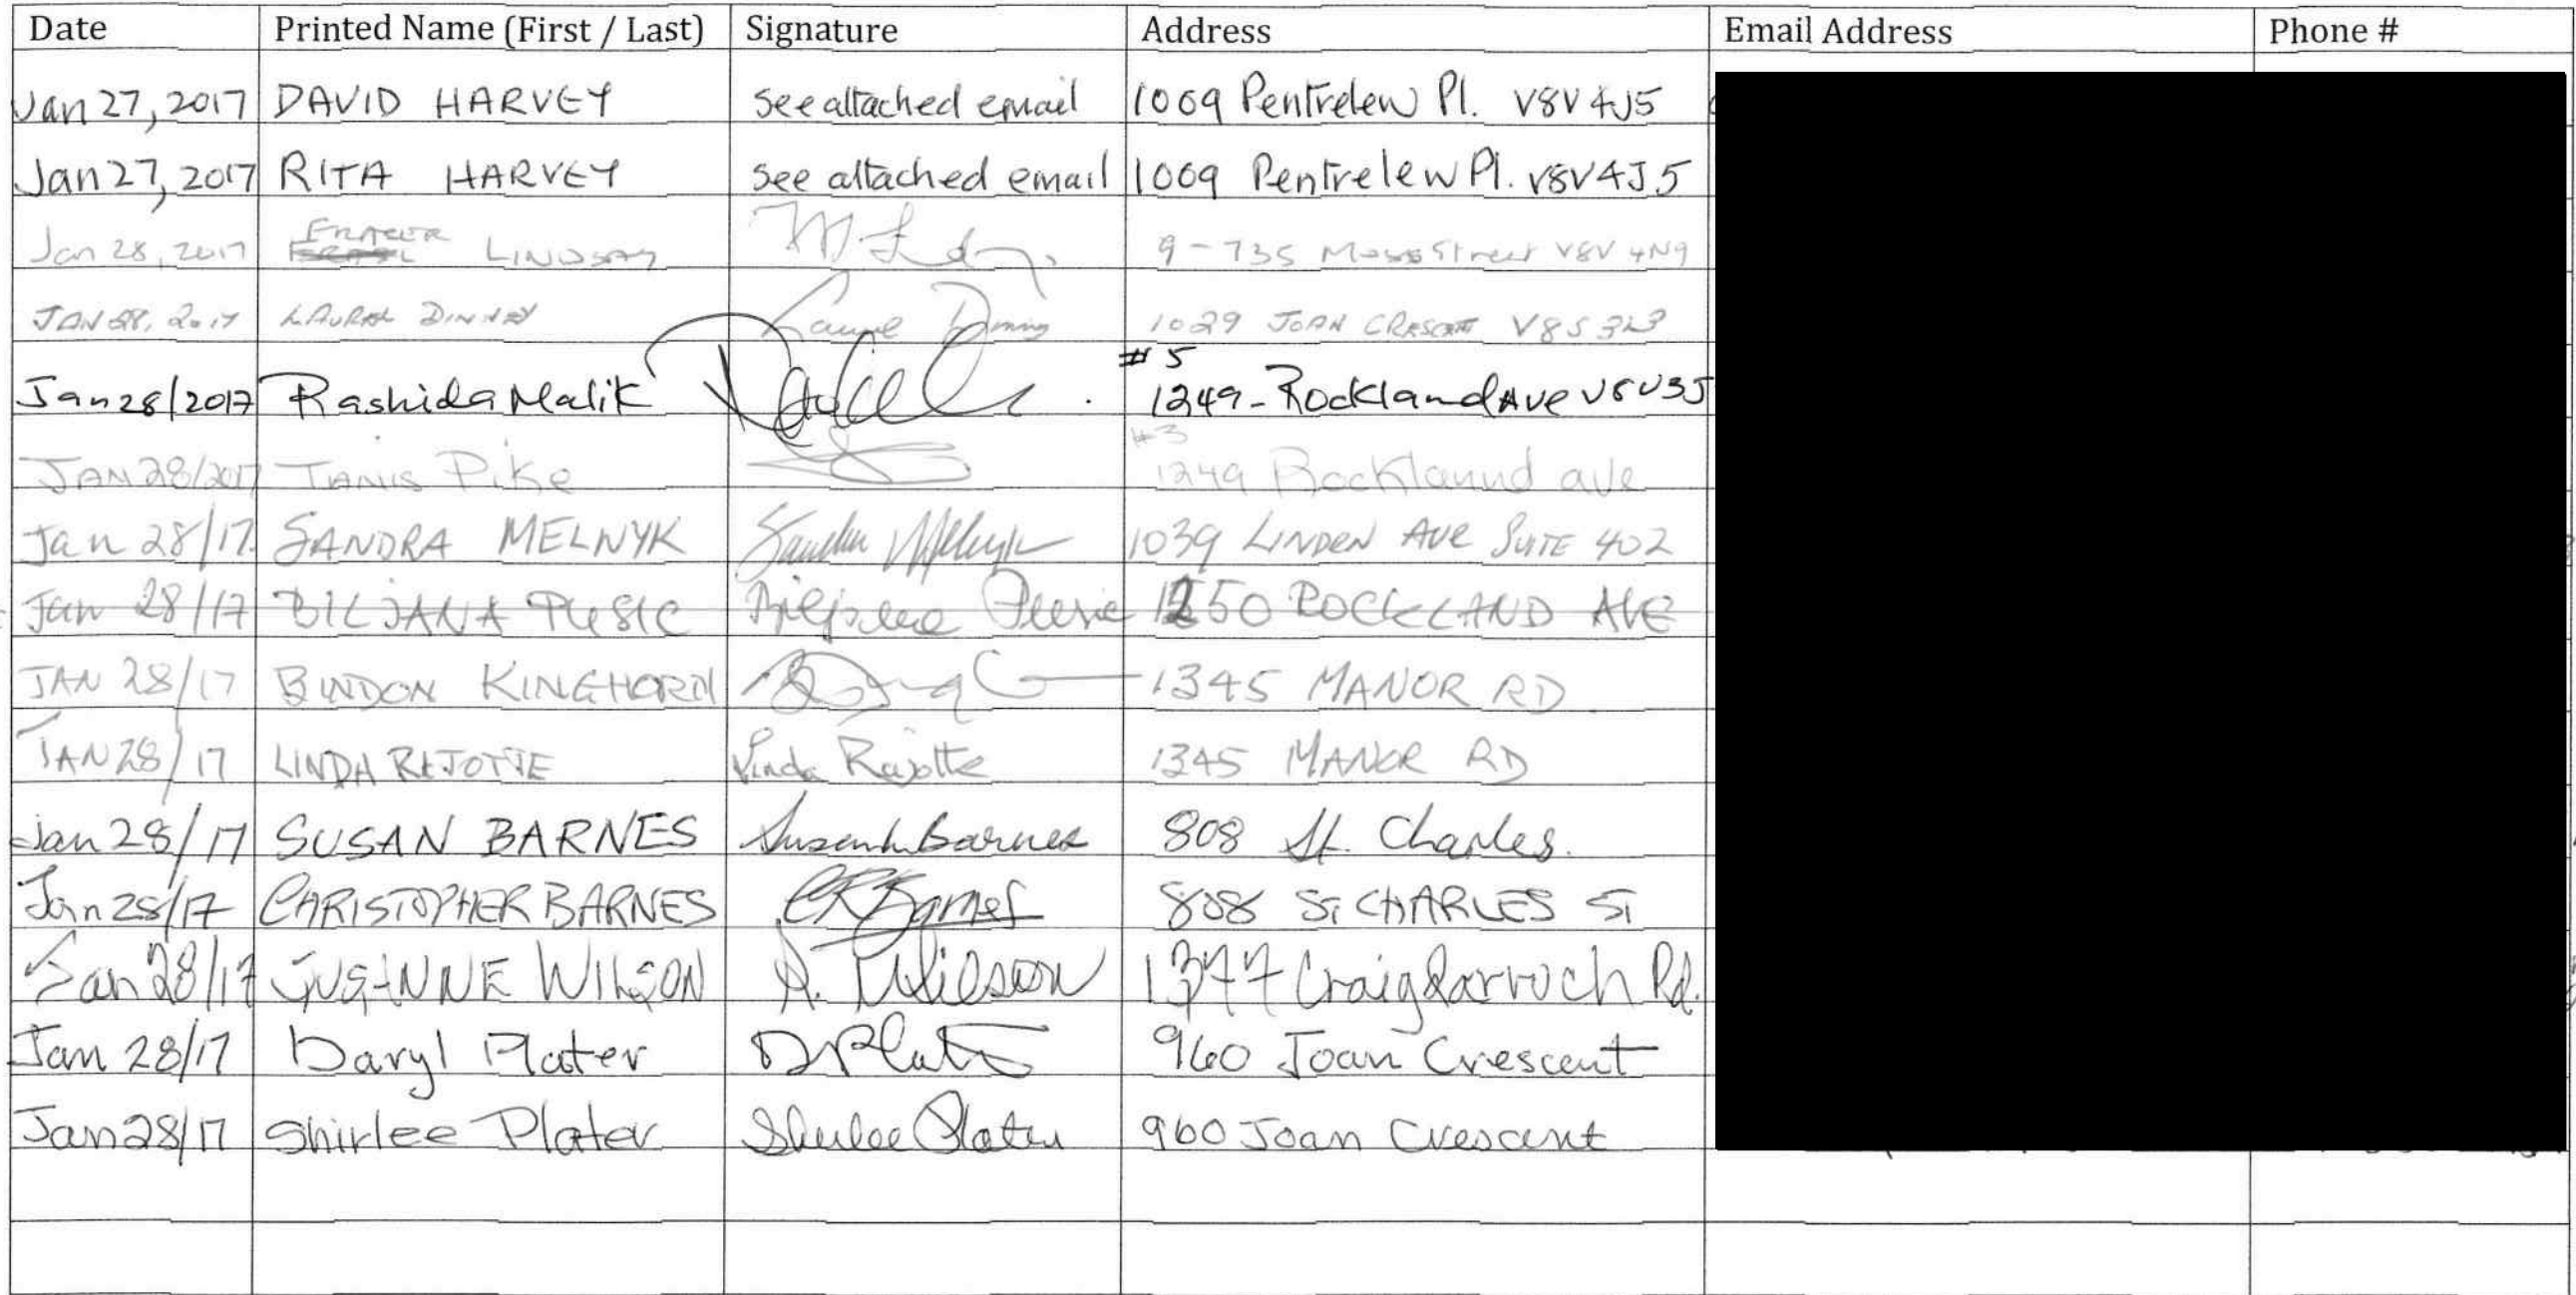 Date Printed Name (First / Last) Signature Address Email Address Phone #
Jan 27, 2017 DAVID HARVEY see attached email 1009 Pentrelew Pl. V8V 4J5
Jan 27, 2017 RITA HARVEY see attached email 1009 Pentrelew Pl. V8V4J5
Jan 28, 2017 LINDSAY 9-735 Moss Street V8V 4N9
JAN 28, 2017 LAUREL DINNEY 1029 JOAN CRESCENT V8S 3L3
#5
Jan 28/2017 Rashida Malik 1249-Rockland Ave V8V3J
#3
JAN 28/2017 TANIS Pike 1249 Rocklannd ave
Jan 28/17 SANDRA MELNYK Sandra Melnyk 1039 LINDEN AVE SUITE 402
Jan 28/17 BILJANA 1250 ROCKLAND AVE
JAN 28/17 BINDON KINGHORN 1345 MANOR RD
JAN 28/17 LINDA RAJOTTE Linda Rajotte 1345 MANOR RD
Jan 28/17 SUSAN BARNES Susan Barnes 808 St. Charles.
Jan 28/17 CHRISTOPHER BARNES CR Barnes 808 ST CHARLES ST
Jan 28/17 SUSANNE WILSON S. Wilson 1377 Craigdarroch Rd.
Jan 28/17 Daryl Plater D Plater 960 Joan Crescent
Jan 28/17 Shirlee Plater Shirlee Plater 960 Joan Crescent